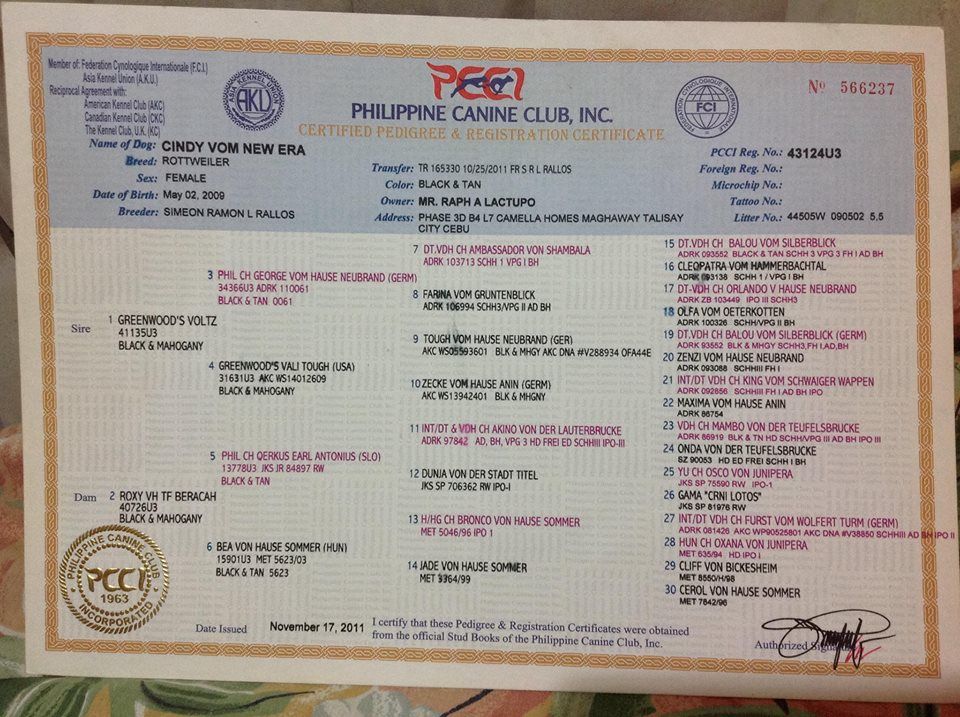 Member of: Federation Cynologique Internationale (F.C.I.)
Asia Kennel Union (A.K.U.)
Reciprocal Agreement with:
American Kennel Club (AKC)
Canadian Kennel Club (CKC)
The Kennel Club, U.K. (KC)
ASIA KENNEL UNION
AKU
PCCI
PHILIPPINE CANINE CLUB, INC.
CERTIFIED PEDIGREE & REGISTRATION CERTIFICATE
FEDERATION CYNOLOGIQUE INTERNATIONALE
FCI
No 566237
Name of Dog: CINDY VOM NEW ERA
Breed: ROTTWEILER
Sex: FEMALE
Date of Birth: May 02, 2009
Breeder: SIMEON RAMON L RALLOS
Transfer: TR 165330 10/25/2011 FR S R L RALLOS
Color: BLACK & TAN
Owner: MR. RAPH A LACTUPO
Address: PHASE 3D B4 L7 CAMELLA HOMES MAGHAWAY TALISAY
CITY CEBU
PCCI Reg. No.: 43124U3
Foreign Reg. No.:
Microchip No.:
Tattoo No.:
Litter No.: 44505W 090502 5,5
Sire
1 GREENWOOD'S VOLTZ
41135U3
BLACK & MAHOGANY
Dam
2 ROXY VH TF BERACAH
40726U3
BLACK & MAHOGANY
3 PHIL CH GEORGE VOM HAUSE NEUBRAND (GERM)
34366U3 ADRK 110061
BLACK & TAN 0061
4 GREENWOOD'S VALI TOUGH (USA)
31631U3 AKC WS14012609
BLACK & MAHOGANY
5 PHIL CH QERKUS EARL ANTONIUS (SLO)
13778U3 JKS JR 84897 RW
BLACK & TAN
6 BEA VON HAUSE SOMMER (HUN)
15901U3 MET 5623/03
BLACK & TAN 5623
7 DT.VDH CH AMBASSADOR VON SHAMBALA
ADRK 103713 SCHH 1 VPG I BH
8 FARINA VOM GRUNTENBLICK
ADRK 106994 SCHH3/VPG II AD BH
9 TOUGH VOM HAUSE NEUBRAND (GER)
AKC WS05593601 BLK & MHGY AKC DNA #V288934 OFA44E
10 ZECKE VOM HAUSE ANIN (GERM)
AKC WS13942401 BLK & MHGNY
11 INT/DT & VDH CH AKINO VON DER LAUTERBRUCKE
ADRK 97842 AD, BH, VPG 3 HD FREI ED SCHHIII IPO-III
12 DUNJA VON DER STADT TITEL
JKS SP 706362 RW IPO-I
13 H/HG CH BRONCO VON HAUSE SOMMER
MET 5046/96 IPO 1
14 JADE VON HAUSE SOMMER
MET 3364/99
15 DT.VDH CH BALOU VOM SILBERBLICK
ADRK 093552 BLACK & TAN SCHH 3 VPG 3 FH I AD BH
16 CLEOPATRA VOM HAMMERBACHTAL
ADRK 093138 SCHH 1 / VPG I BH
17 DT-VDH CH ORLANDO V HAUSE NEUBRAND
ADRK ZB 103449 IPO III SCHH3
18 OLFA VOM OETERKOTTEN
ADRK 100326 SCHH/VPG II BH
19 DT.VDH CH BALOU VOM SILBERBLICK (GERM)
ADRK 93552 BLK & MHGY SCHH3,FH I,AD,BH
20 ZENZI VOM HAUSE NEUBRAND
ADRK 093088 SCHHIII FH I
21 INT/DT VDH CH KING VOM SCHWAIGER WAPPEN
ADRK 092856 SCHHIII FH I AD BH IPO
22 MAXIMA VOM HAUSE ANIN
ADRK 86754
23 VDH CH MAMBO VON DER TEUFELSBRUCKE
ADRK 86919 BLK & TN HD SCHH/VPG III AD BH IPO III
24 ONDA VON DER TEUFELSBRUCKE
SZ 90053 HD ED FREI SCHH I BH
25 YU CH OSCO VON JUNIPERA
JKS SP 75590 RW IPO-1
26 GAMA "CRNI LOTOS"
JKS SP 81976 RW
27 INT/DT VDH CH FURST VOM WOLFERT TURM (GERM)
ADRK 081426 AKC WP90525801 AKC DNA #V38850 SCHHIII AD BH IPO II
28 HUN CH OXANA VON JUNIPERA
MET 635/94 HD IPO I
29 CLIFF VON BICKESHEIM
MET 8550/H/98
30 CEROL VOM HAUSE SOMMER
MET 7842/96
PHILIPPINE CANINE CLUB
PCCI
1963
INCORPORATED
Date Issued November 17, 2011
I certify that these Pedigree & Registration Certificates were obtained
from the official Stud Books of the Philippine Canine Club, Inc.
Authorized